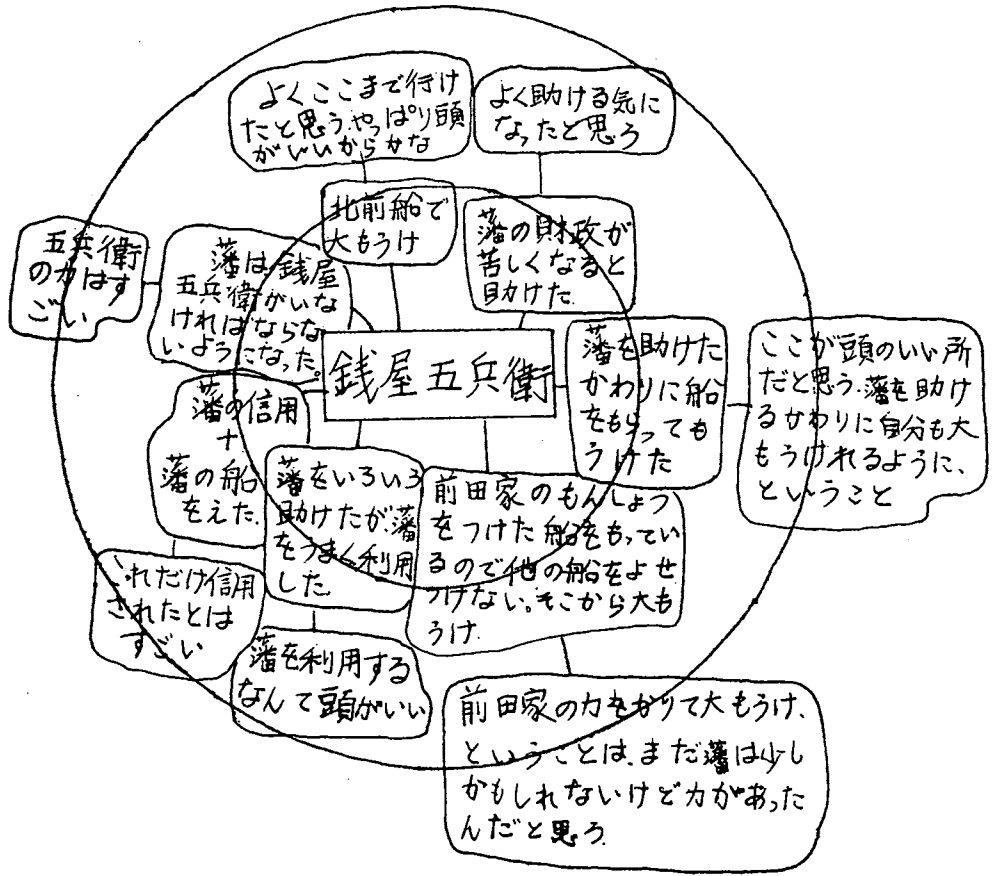 よくここまで行け
たと思う。やっぱり頭
がいいからかな
よく助ける気に
なったと思う
北前船で
大もうけ
藩の財政が
苦しくなると
助けた.
五兵衛
の力はす
ごい
藩は、銭屋
五兵衛がいな
ければならな
いようになった。
銭屋五兵衛
藩を助けた
かわりに船
をもらっても
うけた
ここが頭のいい所
だと思う.藩を助け
るかわりに自分も大
もうけれるように、
ということ
藩の信用
+
藩の船
をえた.
藩をいろいろ
助けたが藩
をうまく利用
した.
前田家のもんしょう
をつけた船をもってい
るので他の船をよせ
つけない。そこから大も
うけ.
これだけ信用
されたとは
すごい
藩を利用する
なんて頭がいい
前田家の力をかりて大もうけ、
ということは、まだ藩は少し
かもしれないけど力があった
んだと思う.